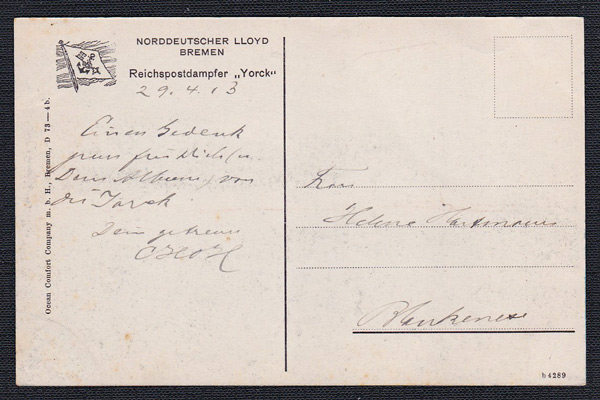 NORDDEUTSCHER LLOYD
BREMEN
Reichspostdampfer „Yorck"
29.4.13
Einen Gedenk
für Dich
Dein Album, von
der Yorck
Dein getreuer
Frau
Helene Hartmann
Blankenese
Ocean Comfort Company m. b. H., Bremen, D 73—4b.
h4289